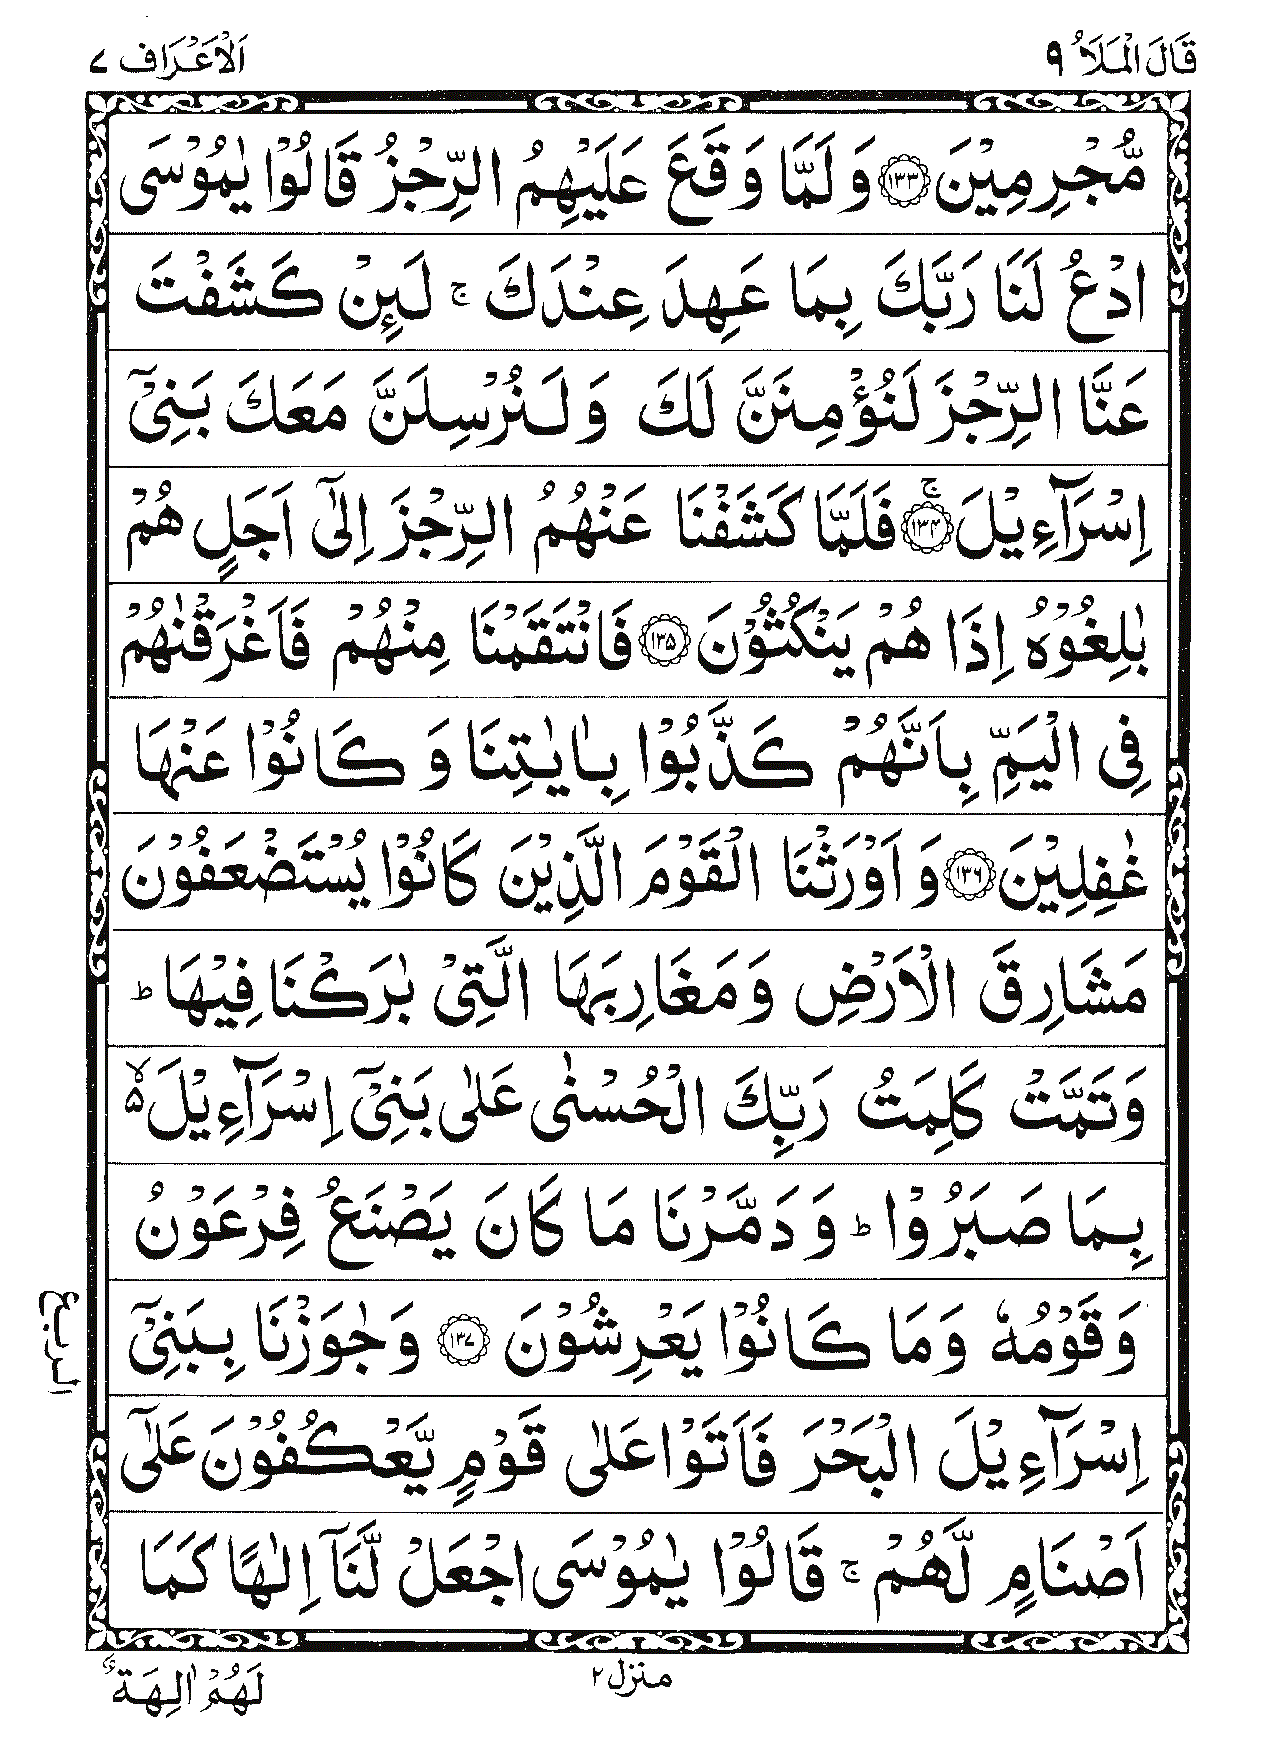 قَالَ الْمَلَاُ ٩
اَلْاَعْرَاف ٧
مُّجْرِمِيْنَ ﴿١٣٣﴾ وَ لَمَّا وَقَعَ عَلَيْهِمُ الرِّجْزُ قَالُوْا يٰمُوْسَى
ادْعُ لَنَا رَبَّكَ بِمَا عَهِدَ عِنْدَكَ ۚ لَىِٕنْ كَشَفْتَ
عَنَّا الرِّجْزَ لَنُؤْمِنَنَّ لَكَ وَ لَنُرْسِلَنَّ مَعَكَ بَنِیْۤ
اِسْرَآءِيْلَ ﴿١٣٤﴾ۚ فَلَمَّا كَشَفْنَا عَنْهُمُ الرِّجْزَ اِلٰۤى اَجَلٍ هُمْ
بٰلِغُوْهُ اِذَا هُمْ يَنْكُثُوْنَ ﴿١٣٥﴾ فَانْتَقَمْنَا مِنْهُمْ فَاَغْرَقْنٰهُمْ
فِى الْيَمِّ بِاَنَّهُمْ كَذَّبُوْا بِاٰيٰتِنَا وَ كَانُوْا عَنْهَا
غٰفِلِيْنَ ﴿١٣٦﴾ وَ اَوْرَثْنَا الْقَوْمَ الَّذِيْنَ كَانُوْا يُسْتَضْعَفُوْنَ
مَشَارِقَ الْاَرْضِ وَمَغَارِبَهَا الَّتِىْ بٰرَكْنَا فِيْهَا ؕ
وَتَمَّتْ كَلِمَتُ رَبِّكَ الْحُسْنٰى عَلٰى بَنِیْۤ اِسْرَآءِيْلَ ۙ۵
بِمَا صَبَرُوْا ؕ وَ دَمَّرْنَا مَا كَانَ يَصْنَعُ فِرْعَوْنُ
وَقَوْمُهٗ وَمَا كَانُوْا يَعْرِشُوْنَ ﴿١٣٧﴾ وَجٰوَزْنَا بِبَنِیْۤ
الربع
اِسْرَآءِيْلَ الْبَحْرَ فَاَتَوْا عَلٰى قَوْمٍ يَّعْكُفُوْنَ عَلٰۤى
اَصْنَامٍ لَّهُمْ ۚ قَالُوْا يٰمُوْسَى اجْعَلْ لَّنَاۤ اِلٰهًا كَمَا
منزل ٢
لَهُمْ اٰلِهَةٌ ؕ